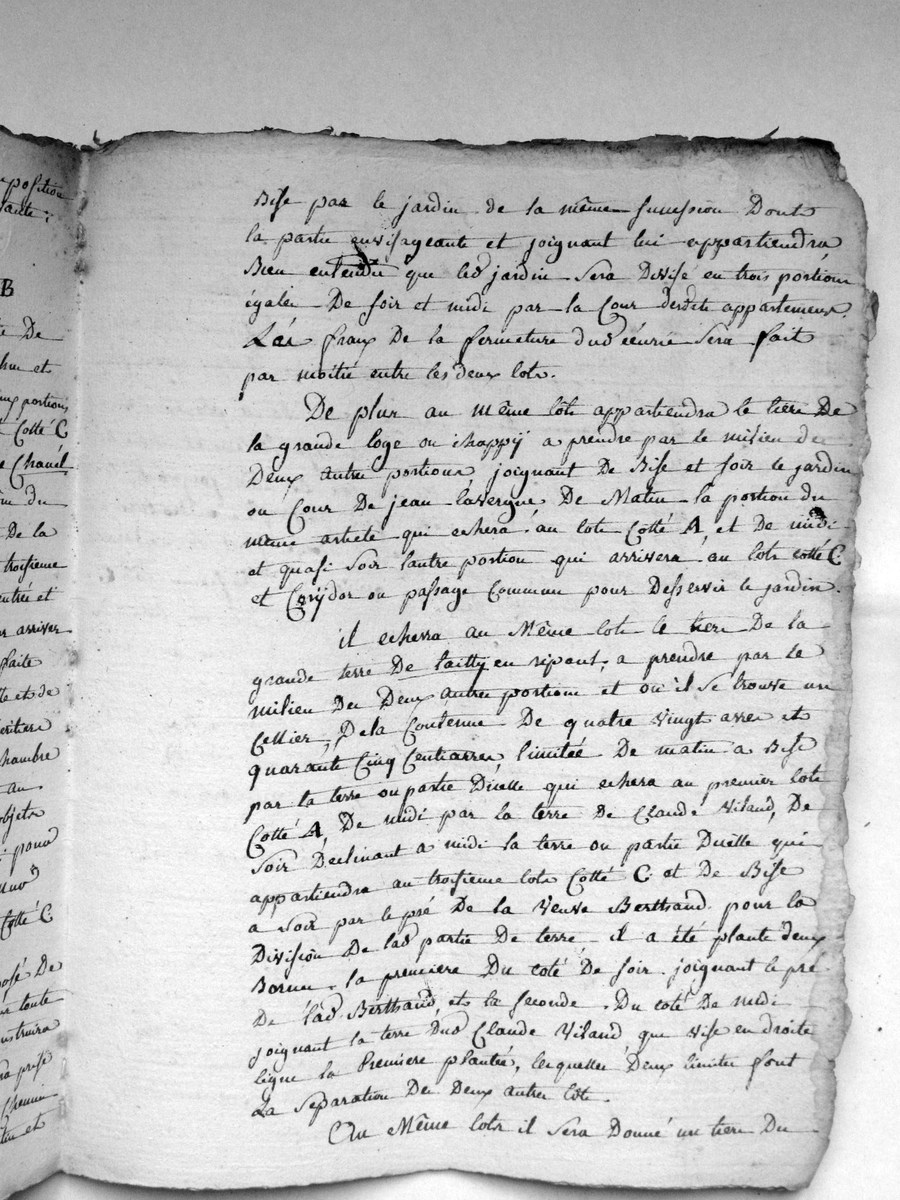 position
vante;
B
De
et
portions
Cotté C
Chauel
du
De la
troisieme
entrée et
arriver
faite
et de
chambre
au
objets
pour
Cotté C
posé De
toute
prise
Chemin
et
Bise par le jardin de la même sucession Dont
la partie envisageante et joignant lui appartiendra
Bien entendu que led jardin Sera Divisé en trois portions
égales De soir et midi par la Cour desdits appartemens.
Les fraix De la fermeture dud écurie Sera fait
par moitié entre les deux lots.
De plus au même lots appartiendra le tiers De
la grande loge ou chappÿ a prendre par le milieu de
Deux autre portions, joignant De Bise et soir le jardin
ou Cour De jean lavergne, De Matin la portion du
même article qui echera au lots Cotté A, et De midi
et quasi Soir l'autre portion qui arrivera au lots cotté C
et Corÿdor ou passage Commun pour Desservir le jardin.
il echerra au Même lots le tiers De la
grande terre De tailly en ripant, a prendre par le
milieu Des Deux autres portions et ou il se trouve un
Cellier, De la Contenue De quatre vingt arres et
quarante Cinq Centiarres, limitée De matin a Bise
par la terre ou partie D'icelle qui echera au premier lots
Cotté A, De midi par la terre De Claude Viland, De
Soir Declinant a midi la terre ou partie Duelle qui
appartiendra au troisieme lots Cotté C et De Bise
a Soir par le pré De la Veuve Berthaud pour la
Division De lad partie De terre il a été planté deux
Bornes, la premiere Du coté De soir joignant le pré
De lad Berthaud, et la seconde Du coté De midi
joignant la terre Dud Claude Viland, que vise en droite
ligne la Premiere plantée, lesquelles Deux limites font
La Separation Des Deux autres lots.
Au Même lots il Sera Donné un tiers Du